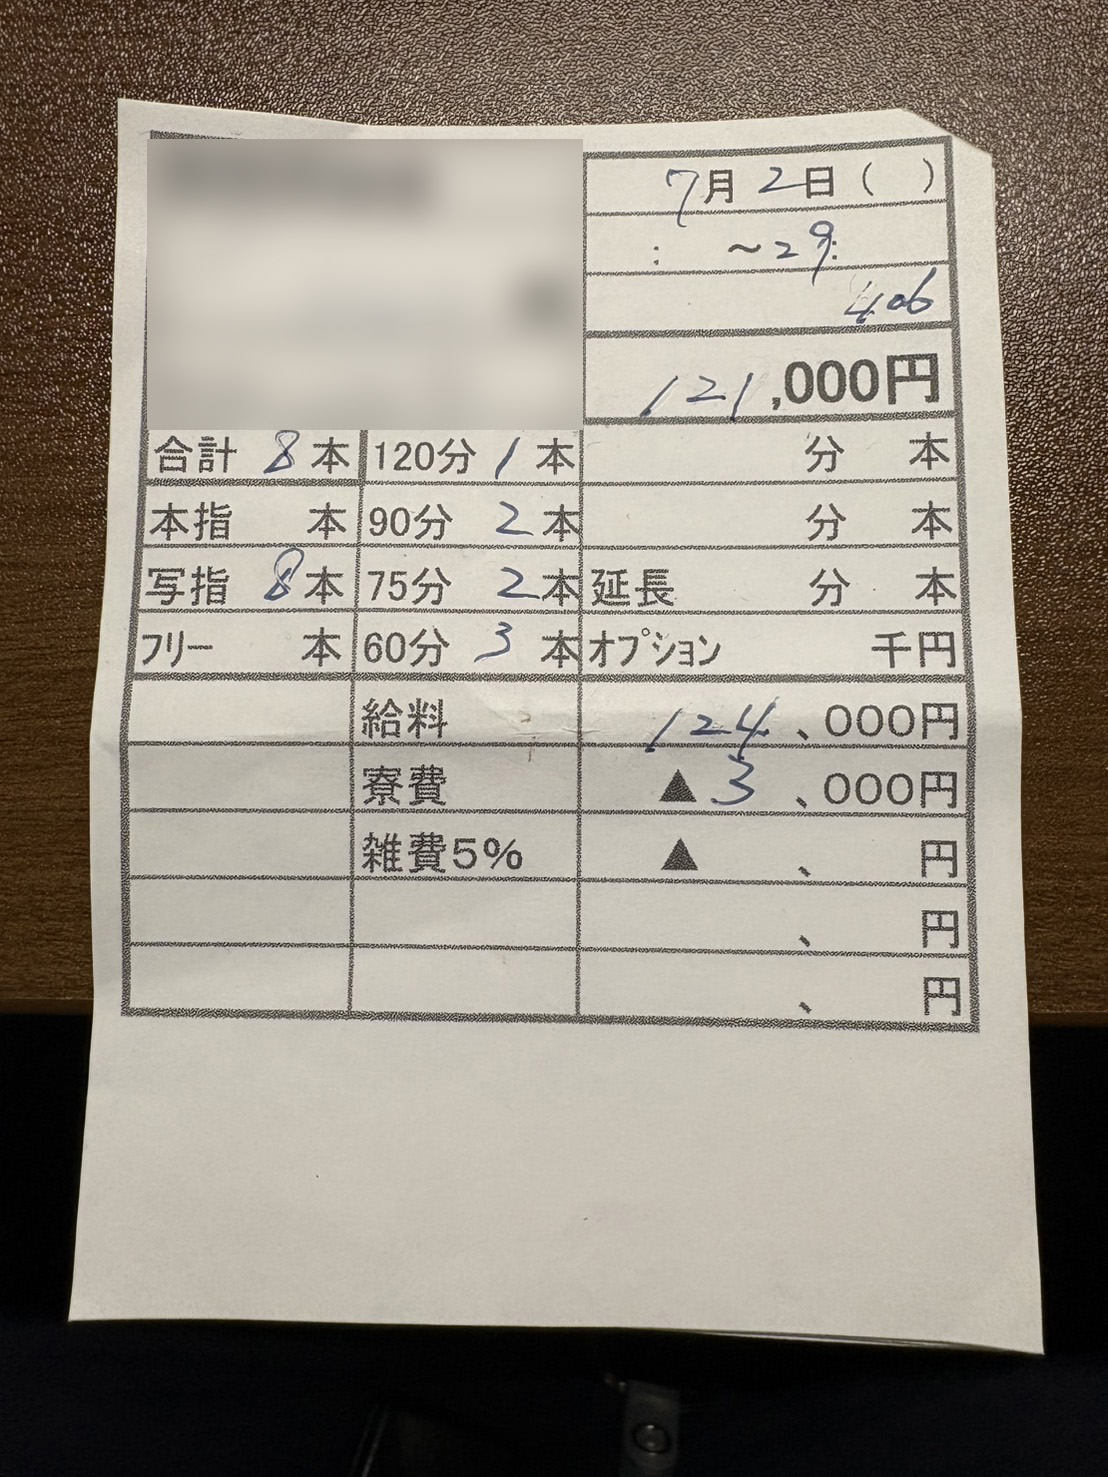 7月2日( )
: ~29:
406
121,000円
合計 8本 120分 1本 分 本
本指 本 90分 2本 分 本
写指 8本 75分 2本 延長 分 本
フリー 本 60分 3本 オプション 千円
給料 124、000円
寮費 ▲3、000円
雑費5% ▲ 、 円
、 円
、 円